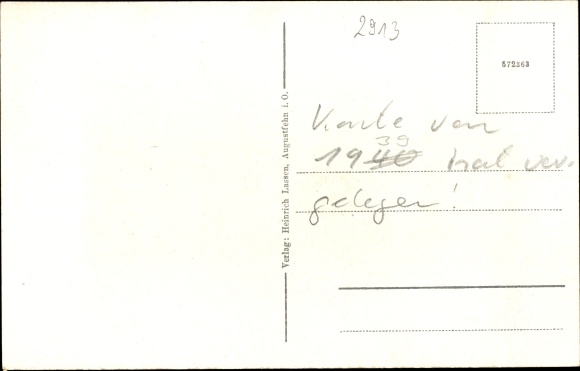 2913
572363
Verlag: Heinrich Lassen, Augustfehn i. O.
Karte von
39
1940 hat vor.
gelegen!